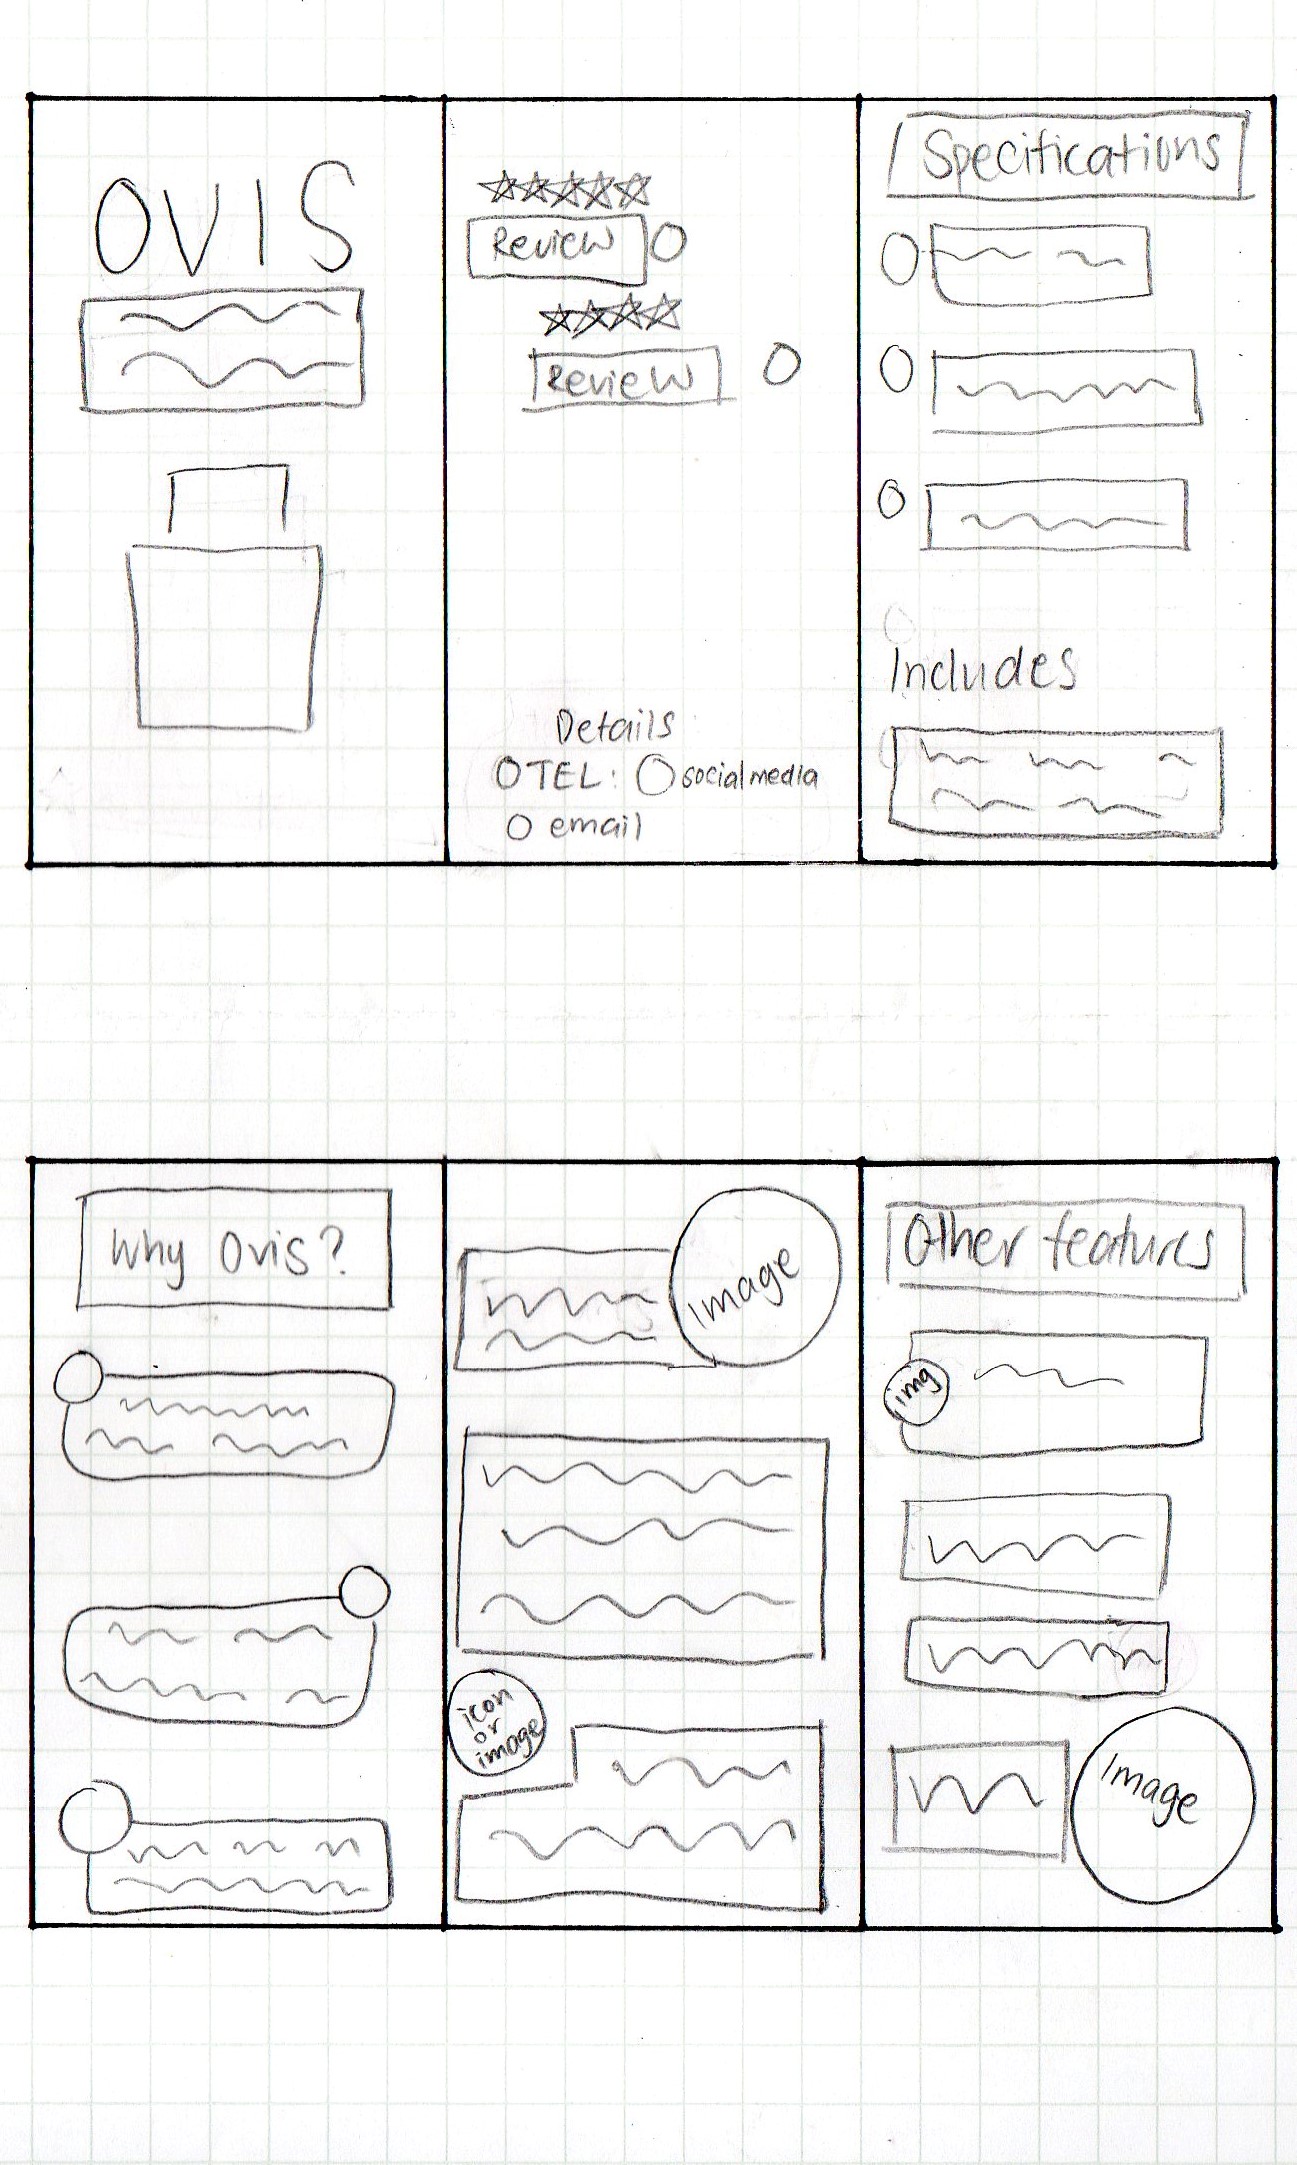 OVIS
Review
Review
Details
TEL:
social media
email
Specifications
Includes
Why Ovis?
Image
icon
or
image
Other features
img
Image